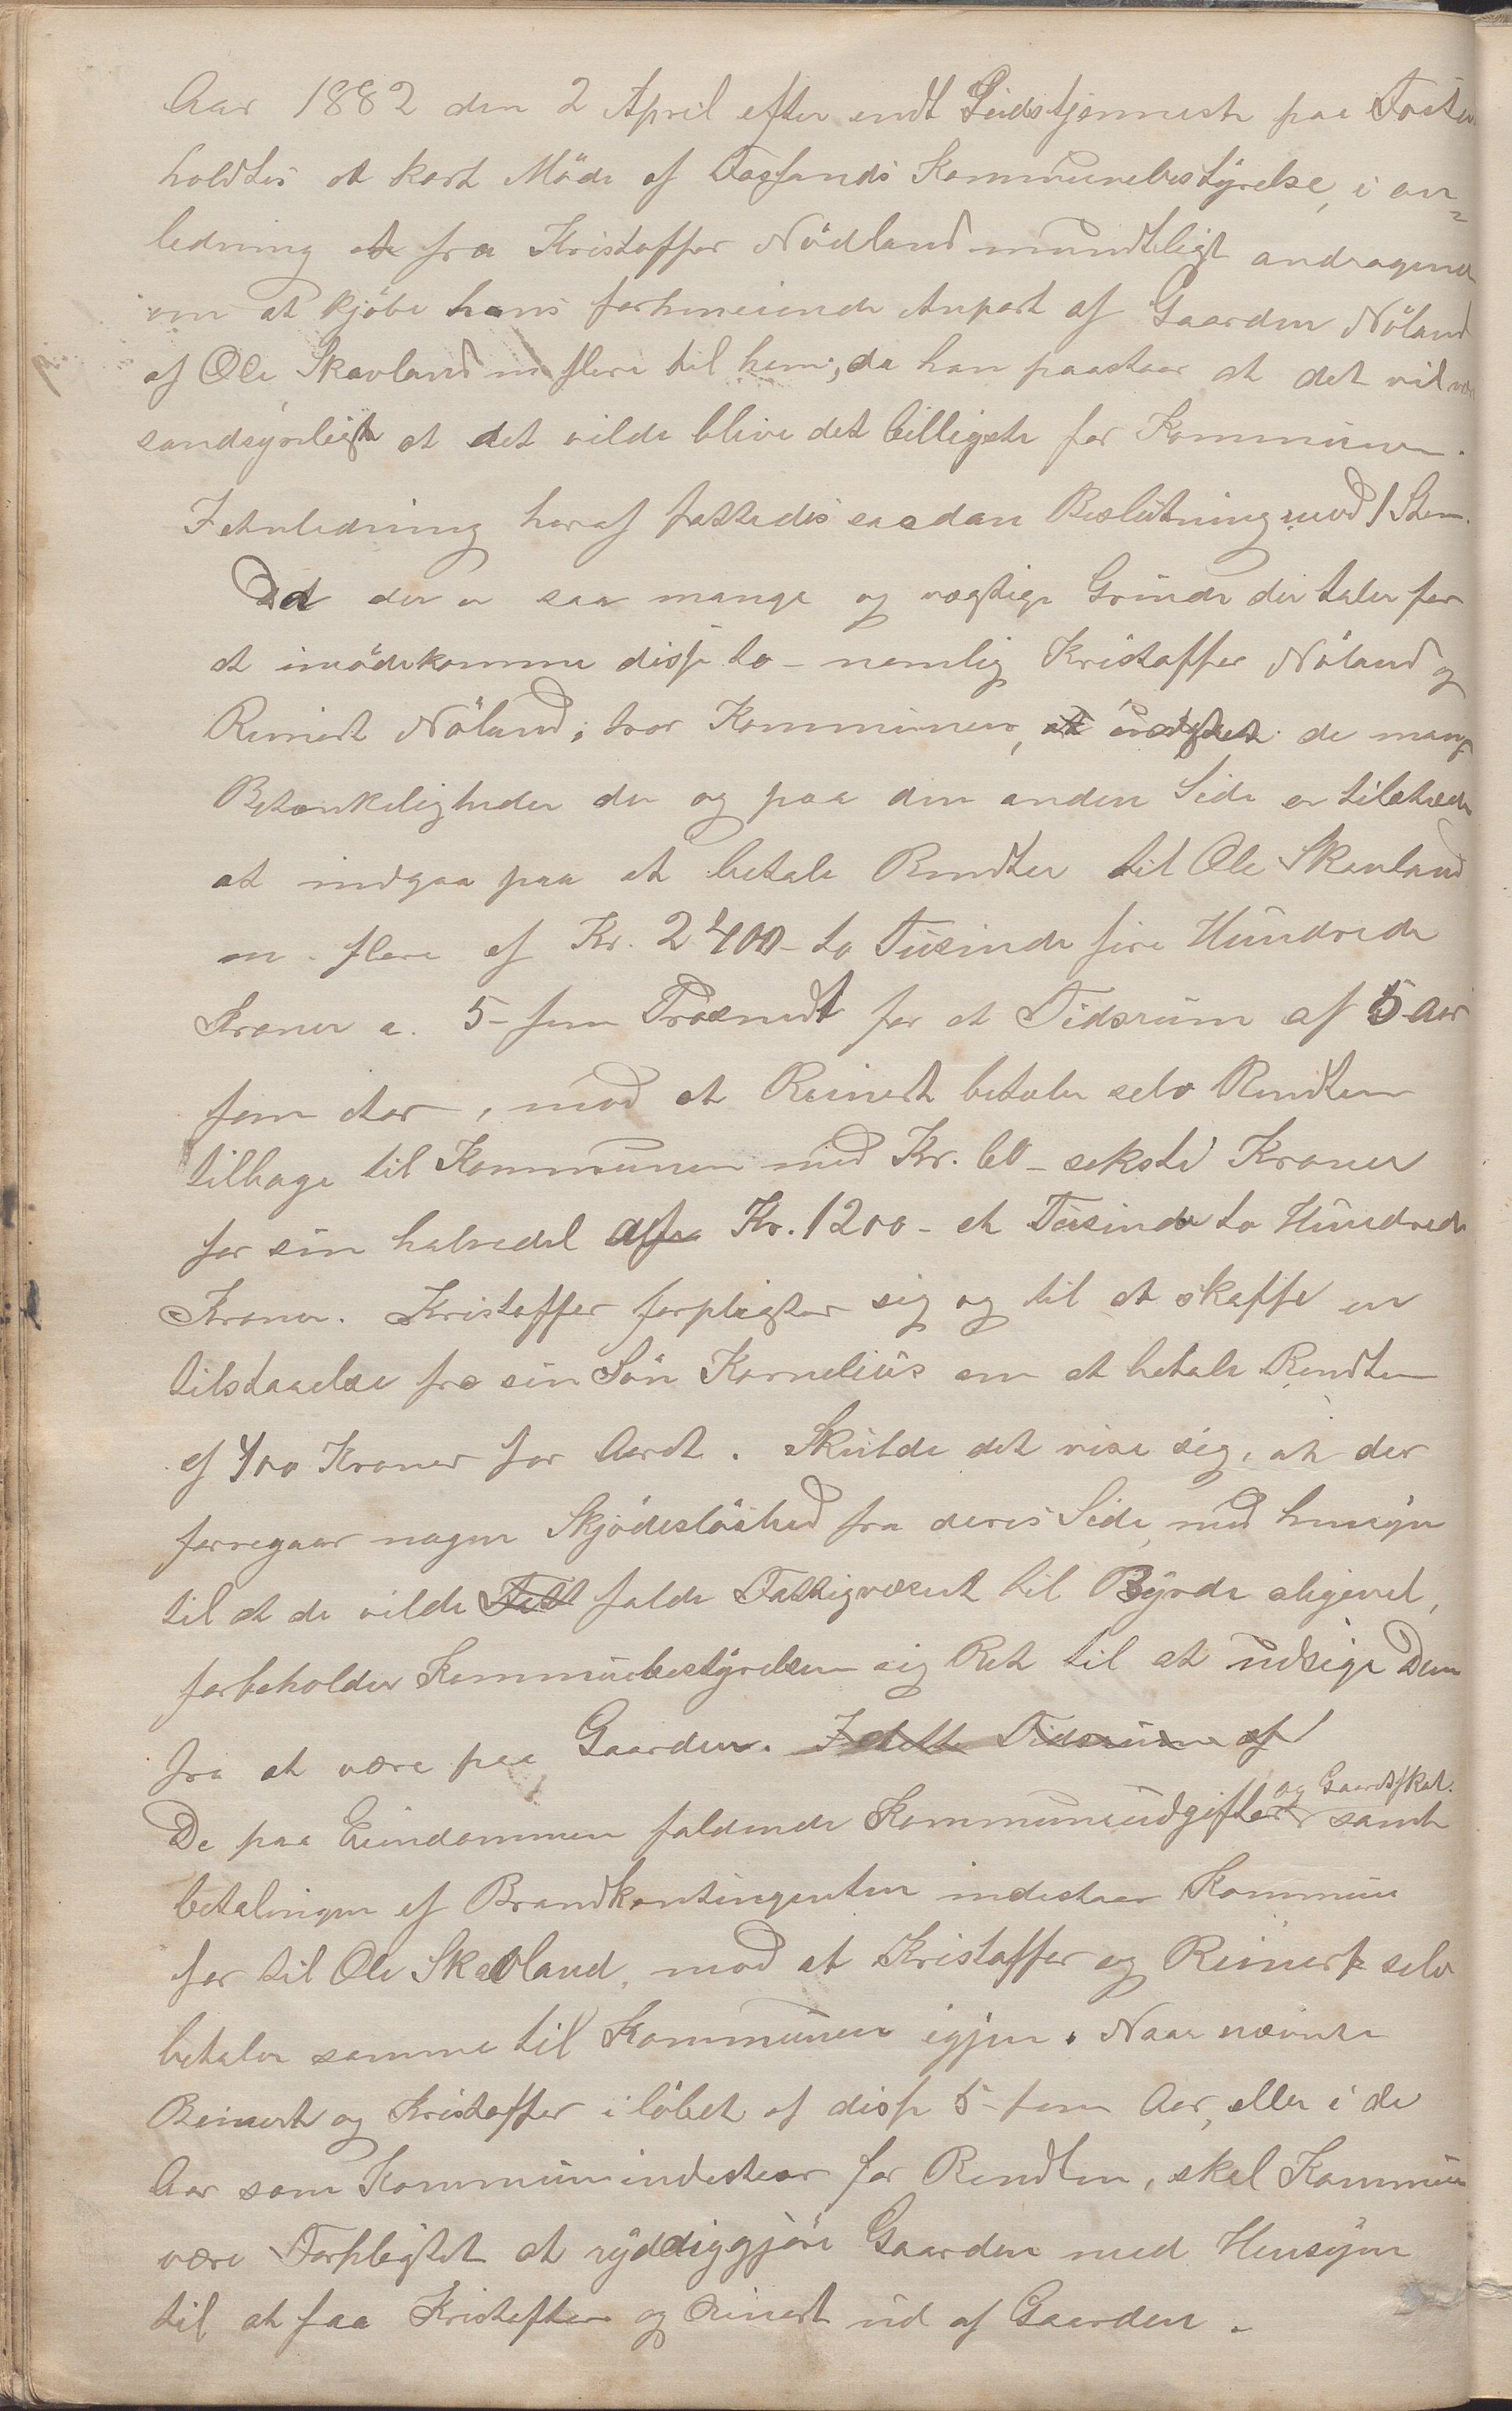 Aar 1882 den 2 April efter endt Gudstjenneste paa
holdtes et kort Möde af Fogsands Kommunebestÿrelse, i an=
ledning et fra Kristoffer Nödland mundtligt andragend
om at kjöbe hans forhenværende Anpart af Gaarden Nöland
af Ole Skavland m flere til ham; da han paastaar at det vil
sandsynligst at det vilde blive det billigste for Kommunen.
I Anledning heraf fattedes saadan Beslutning mod 1 Stem.
Ad der er saa mange og vægtige Grunde der taler for
at imödekomme disse to - nemlig Kristoffer Nöland og
Reinert Nöland; tror Kommunen, at uagtet de mang
Betænkeligheder der og paa den anden Side er tilstæde
at indgaa paa at betale Rendten til Ole Skavland
m. flere af Kr. 2400 - to Tusinde fire Hundrede
Kroner a. 5 - fem Prosendt for et Tidsrum af 5 Aar
fem Aar, mod at Reinert betaler selv Rendten
tilbage til Kommunen med Kr. 60 - seksti Kroner
for sin halvedel af Kr. 1200 - et Tusinde to Hundrede
Kroner. Kristoffer forpligter sig og til at skaffe en
tilstaaelse fra sin Sön Kornelius om at betale Rendten
af 400 Kroner for Aaret. Skulde det vise sig, at der
forregaar nogen Skjödeslöshed fra deres Side, med hensyn
til at de vilde Fatt falde Fattigvæsent til Bÿrde aligevel,
forbeholder Kommunebestÿrelsen sig Ret til at udsige Dem
fra at være paa Gaarden. I dette Tidsrum af
og Gaardsskat.
De paa Eiendommen faldende Kommuneudgifter samt
betalingen af Brandkontingenten indestaar Kommune
for til Ole Skavland, mod at Kristoffer og Reinert selv
betaler samme til Kommunen igjen. Naar nævnte
Reinert og Kristoffer i löbet af disse 5 - fem Aar, eller i de
Aar som Kommunen indestaar for Rendten, skal Kommune
være Forpligtet at ryddiggjöre Gaarden med Hensyn
til at faa Kristoffer og Reinert ud af Gaarden.